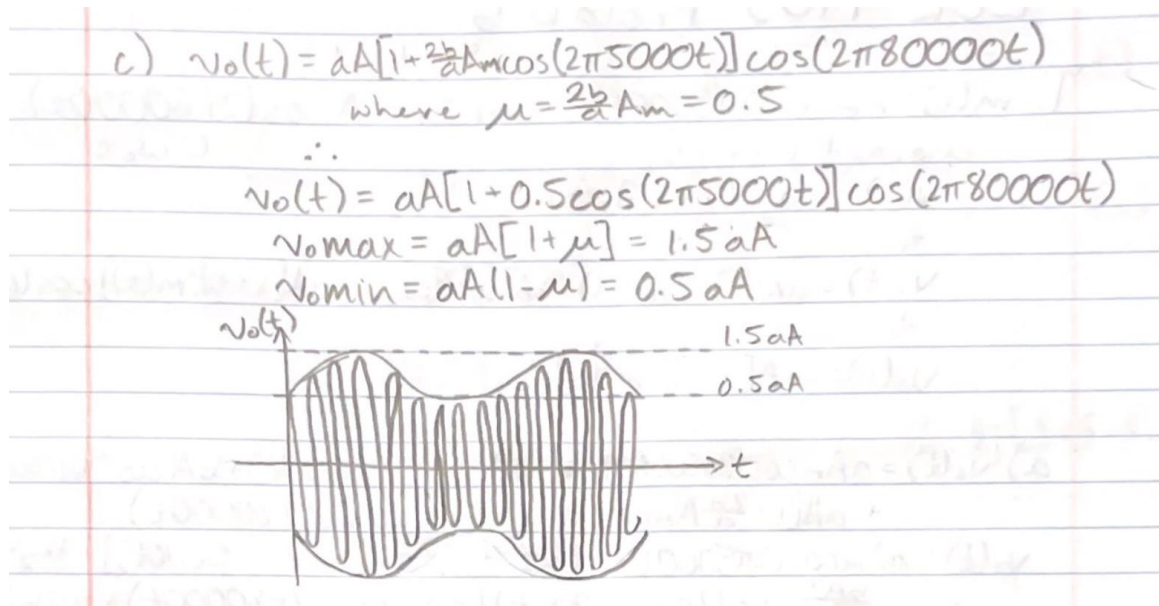 c) v₀(t) = aA[1+2b/a Amcos(2π5000t)]cos(2π80000t)
where μ = 2b/a Am = 0.5
∴
v₀(t) = aA[1+0.5cos(2π5000t)]cos(2π80000t)
v₀max = aA[1+μ] = 1.5aA
v₀min = aA(1-μ) = 0.5aA
v₀(t)
1.5aA
0.5aA
t